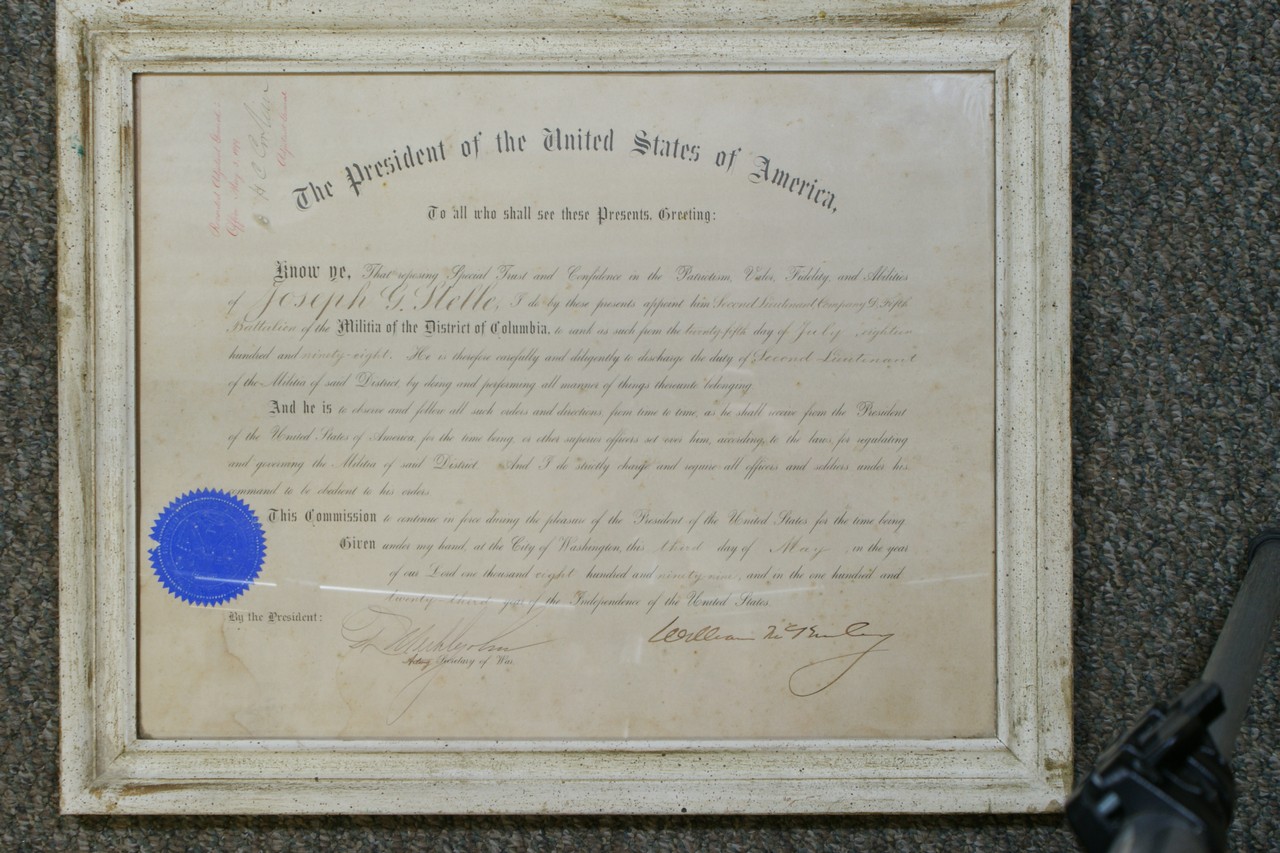 The President of the United States of America,
To all who shall see these Presents, Greeting:
Know ye, That reposing Special Trust and Confidence in the Patriotism, Valor, Fidelity, and Abilities
of Joseph G. Stelle, I do by these presents appoint him Second Lieutenant Company D, Fifth
Battalion of the Militia of the District of Columbia, to rank as such from the twenty fifth day of July eighteen
hundred and ninety-eight. He is therefore carefully and diligently to discharge the duty of Second Lieutenant
of the Militia of said District, by doing and performing all manner of things thereunto belonging.
And he is to observe and follow all such orders and directions, from time to time, as he shall receive from the President
of the United States of America, for the time being, or other superior officers set over him, according to the laws for regulating
and governing the Militia of said District. And I do strictly charge and require all officers and soldiers under his
command to be obedient to his orders.
This Commission to continue in force during the pleasure of the President of the United States for the time being.
Given under my hand, at the City of Washington, this third day of May, in the year
of our Lord one thousand eight hundred and ninety nine, and in the one hundred and
twenty-third year of the Independence of the United States.
By the President:
William McKinley
Acting Secretary of War